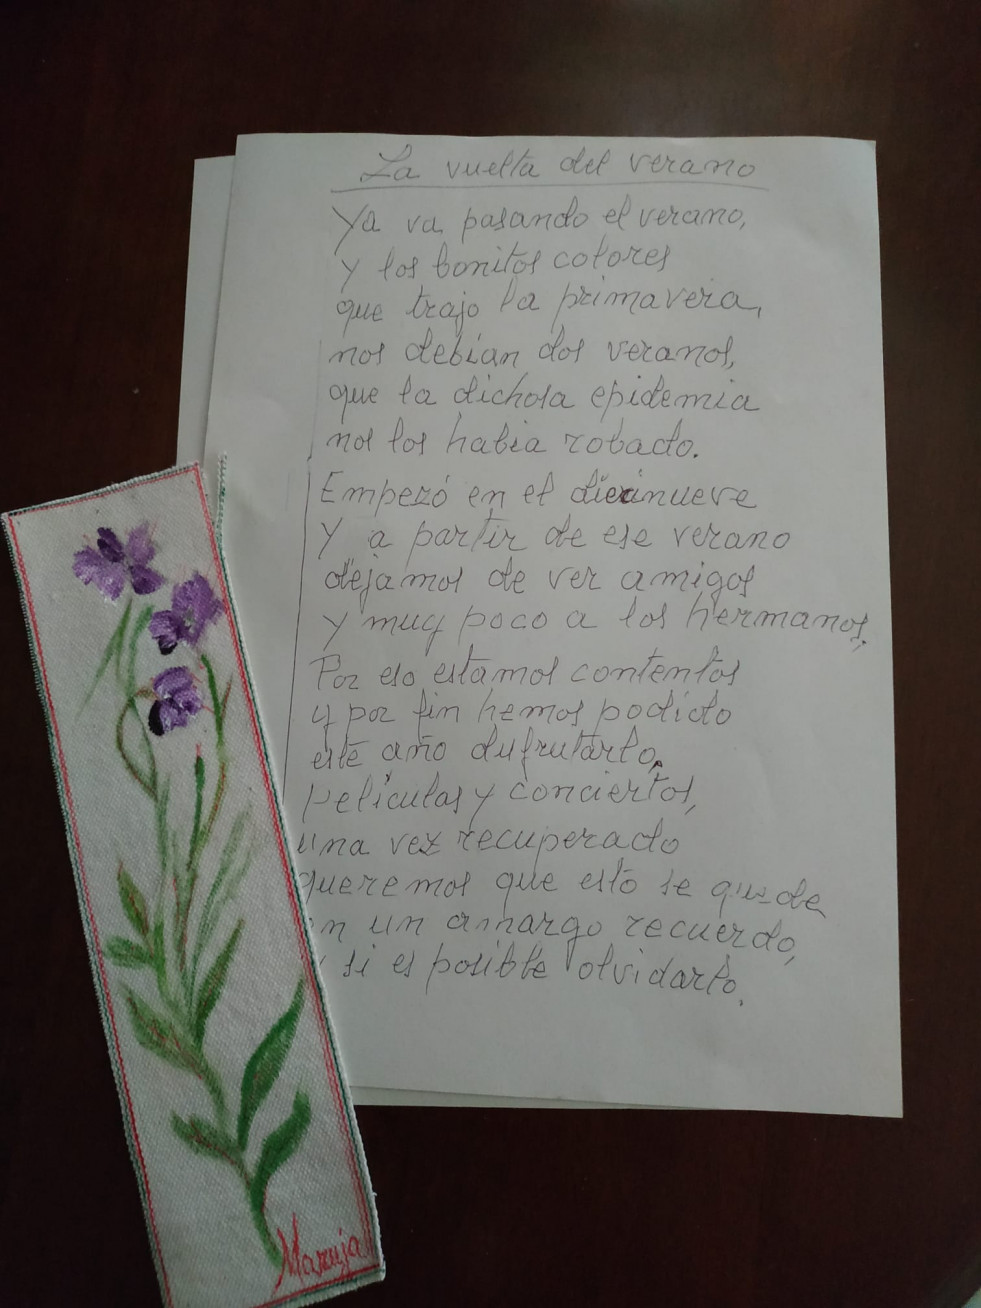 La vuelta del verano
Ya va pasando el verano,
y los bonitos colores
que trajo la primavera,
nos debían dos veranos,
que la dichosa epidemia
nos los habia robado.
Empezó en el diecinueve
Y a partir de ese verano
dejamos de ver amigos
y muy poco a los hermanos.
Por eso estamos contentos
y por fin hemos podido
este año disfrutarlo.
Películas y conciertos,
una vez recuperado
queremos que esto se quede
en un amargo recuerdo,
y si es posible olvidarlo.
Maruja